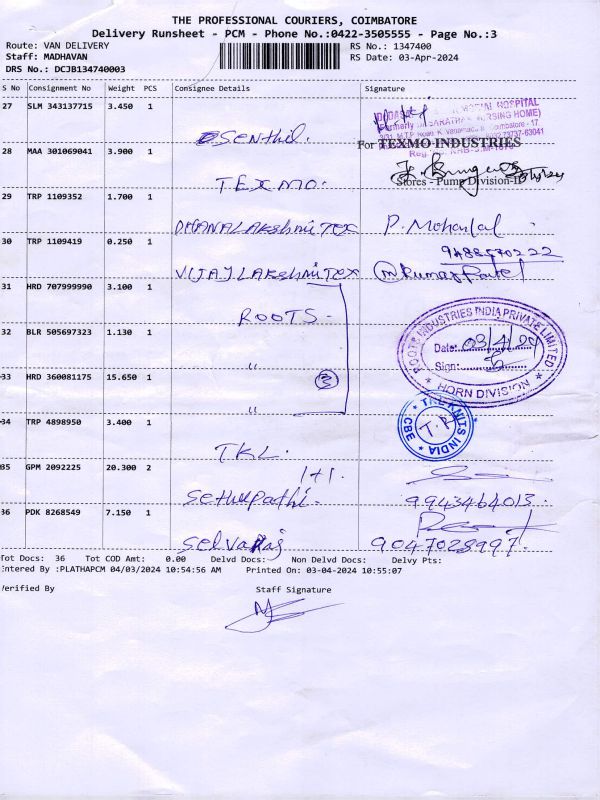 THE PROFESSIONAL COURIERS, COIMBATORE
Delivery Runsheet - PCM - Phone No.:0422-3505555 - Page No.:3
Route: VAN DELIVERY
RS No.: 1347400
Staff: MADHAVAN
RS Date: 03-Apr-2024
DRS No.: DCJB134740003
S No Consignment No Weight PCS Consignee Details Signature
27 SLM 343137715 3.450 1
HOSPITAL
NURSING HOME)
Senthil.
For TEXMO INDUSTRIES
28 MAA 301069041 3.900 1
Stores - Pump Division-II
TEXMO.
29 TRP 1109352 1.700 1
DHANALAKSHMI TEX P. Mohanlal
30 TRP 1109419 0.250 1
9488570222
VIJAYLAKSHMI TEX
31 HRD 707999990 3.100 1
ROOTS -
ROOTS INDUSTRIES INDIA PRIVATE LIMITED
32 BLR 505697323 1.130 1
Date: 03/4/24
Sign:
"
33 HRD 360081175 15.650 1
3
HORN DIVISION
"
34 TRP 4898950 3.400 1
KNITS INDIA
CBE
T.K.L.
35 GPM 2092225 20.300 2
1+1
Sethupathi. 9943464013.
36 PDK 8268549 7.150 1
Selvaraj 9047028997.
Tot Docs: 36 Tot COD Amt: 0.00 Delvd Docs: Non Delvd Docs: Delvy Pts:
Entered By :PLATHAPCM 04/03/2024 10:54:56 AM Printed On: 03-04-2024 10:55:07
Verified By Staff Signature